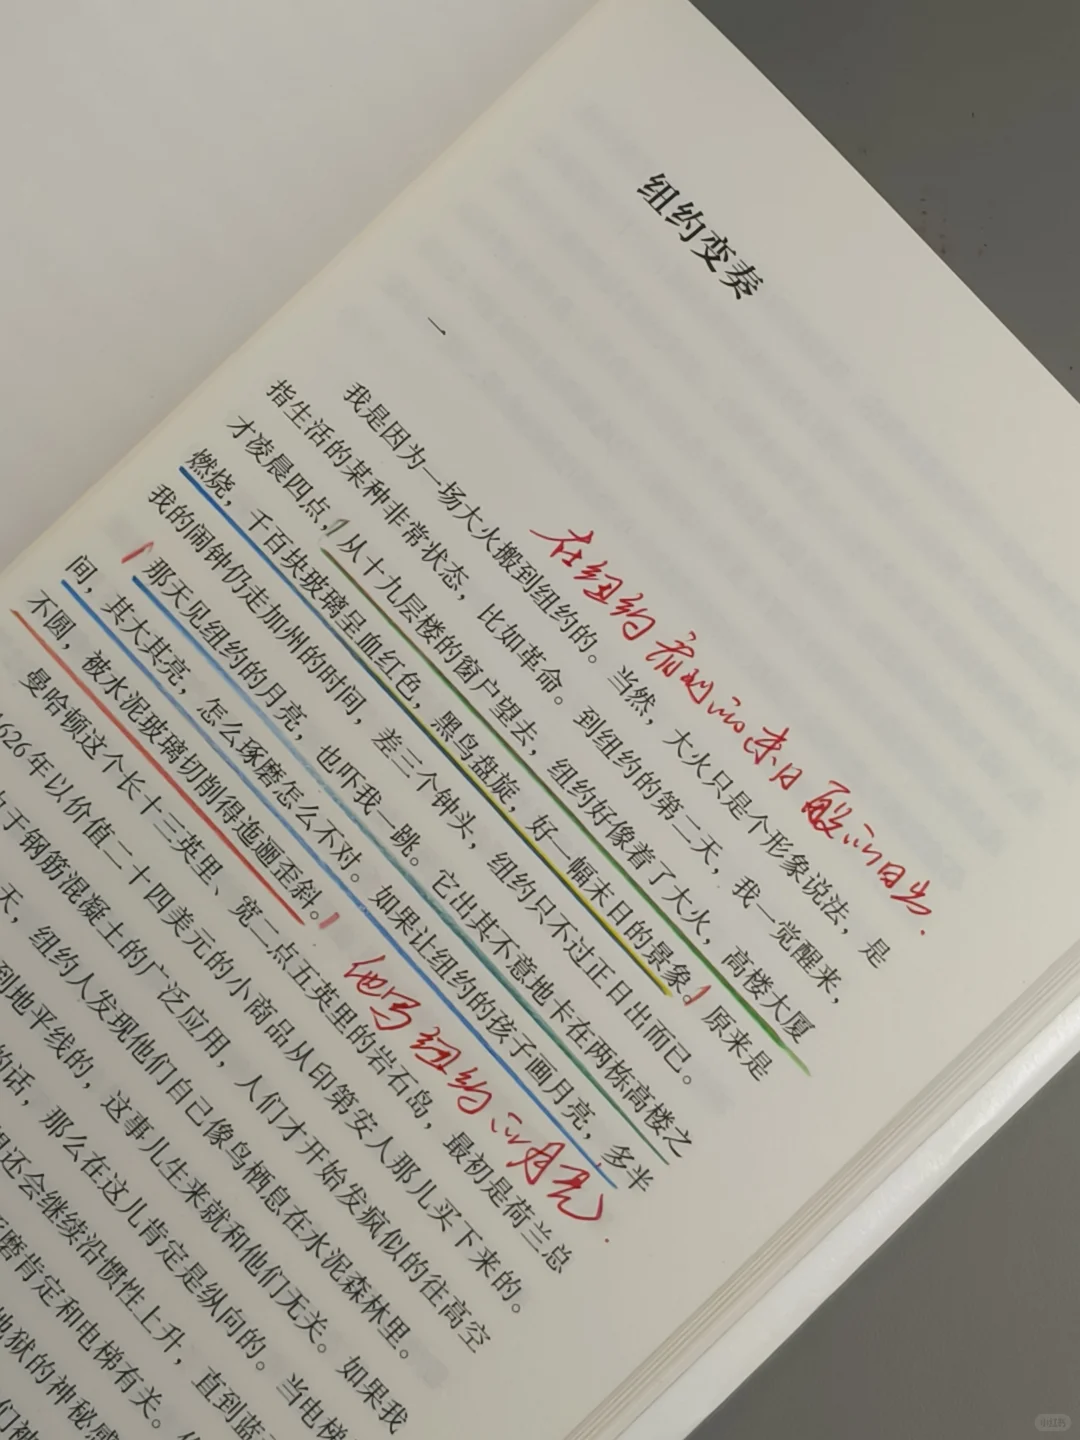 纽约变奏
一
我是因为一场大火搬到纽约的。当然，大火只是个形象说法，是
指生活的某种非常状态，比如革命。到纽约的第二天，我一觉醒来，
才凌晨四点，从十九层楼的窗户望去，纽约好像着了大火，高楼大厦
燃烧，千百块玻璃呈血红色，黑鸟盘旋，好一幅末日的景象。原来是
我的闹钟仍走加州的时间，差三个钟头，纽约只不过正日出而已。
那天见纽约的月亮，也吓我一跳。它出其不意地卡在两栋高楼之
间，其大其亮，怎么琢磨怎么不对。如果让纽约的孩子画月亮，多半
不圆，被水泥玻璃切削得迤逦歪斜。
曼哈顿这个长十三英里、宽二点五英里的岩石岛，最初是荷兰总
1626年以价值二十四美元的小商品从印第安人那儿买下来的。
于钢筋混凝土的广泛应用，人们才开始发疯似的往高空
天，纽约人发现他们自己像鸟栖息在水泥森林里。
到地平线的，这事儿生来就和他们无关。如果我
的话，那么在这儿肯定是纵向的。当电梯
还会继续沿惯性上升，直到蓝
磨肯定和电梯有关。
地狱的神秘感
们被
在纽约看到的末日般的日出.
他写纽约的月亮.
小红书